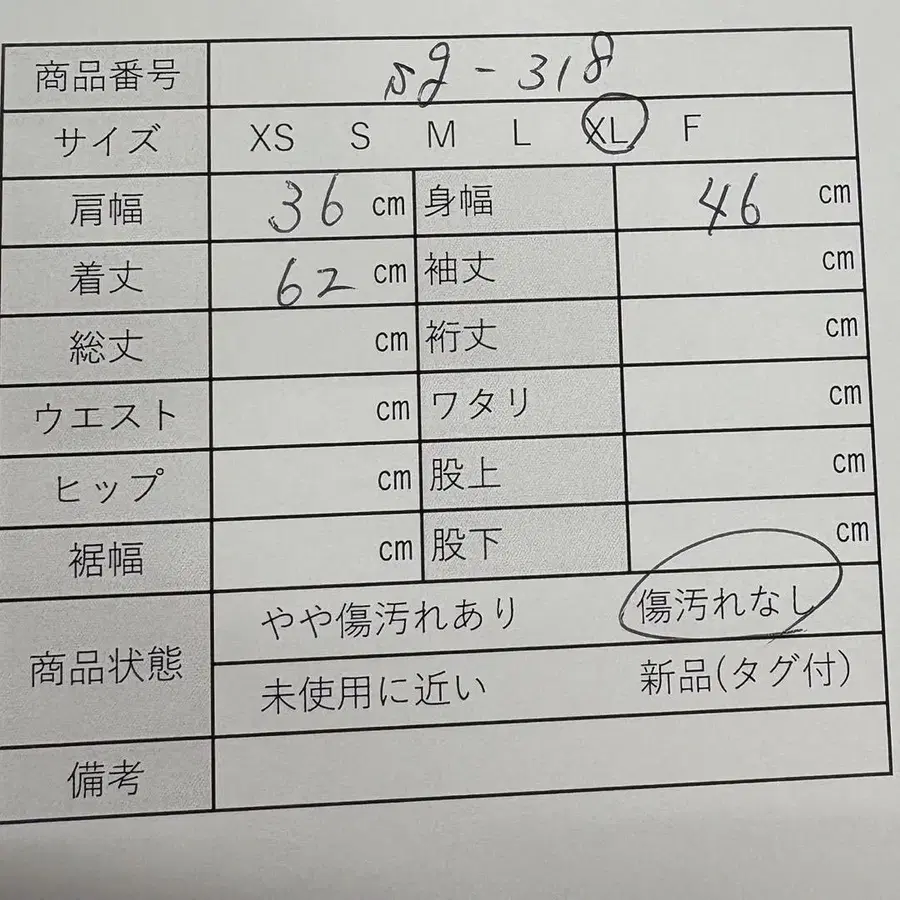 商品番号 sg-318
サイズ XS S M L XL F
肩幅 36 cm 身幅 46 cm
着丈 62 cm 袖丈 cm
総丈 cm 裄丈 cm
ウエスト cm ワタリ cm
ヒップ cm 股上 cm
裾幅 cm 股下 cm
商品状態
やや傷汚れあり 傷汚れなし
未使用に近い 新品(タグ付)
備考